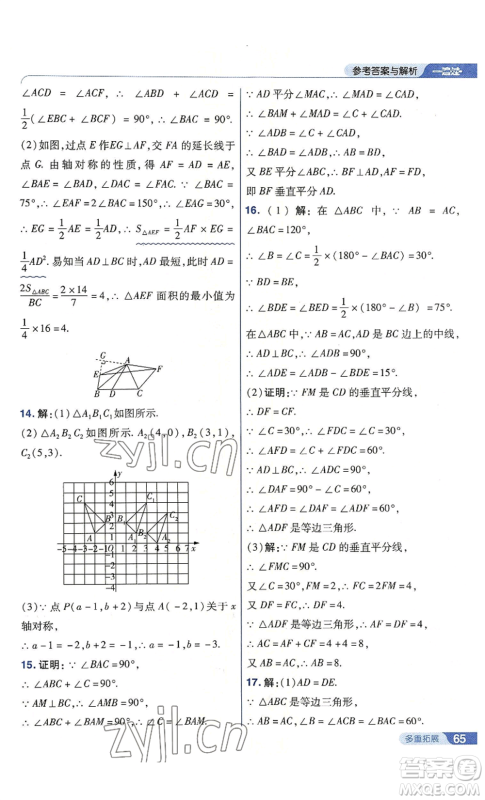 参考答案与解析 一遍过
∠ACD = ∠ACF, ∴ ∠ABD + ∠ACD =
1/2(∠EBC+∠BCF)=90°, ∴∠BAC=90°.
(2)如图,过点 E 作 EG⊥AF,交 FA 的延长线于
点 G. 由轴对称的性质,得 AF = AD = AE,
∠BAE = ∠BAD, ∠DAC = ∠FAC. ∵ ∠BAC =
75°, ∴∠EAF=2∠BAC=150°, ∴∠EAG=30°,
∴EG = 1/2 AE = 1/2 AD, ∴ S△AEF = 1/2 AF × EG =
1/4 AD². 易知当 AD⊥BC 时, AD 最短,此时 AD =
2S△ABC/BC = 2×14/7 = 4, ∴ △AEF 面积的最小值为
1/4 ×16=4.
G A F E B D C
14. 解:(1)△A₁B₁C₁如图所示.
(2)△A₂B₂C₂如图所示. A₂(4,0), B₂(3,1),
C₂(5,3).
(3)∵ 点 P(a-1,b+2)与点 A(-2,1)关于 x
轴对称,
∴a-1=-2,b+2=-1,∴a=-1,b=-3.
15. 证明:∵∠BAC=90°,
∴∠ABC+∠C=90°.
∵AM⊥BC,∴∠AMB=90°,
∴∠ABC+∠BAM=90°,∴∠C=∠BAM.
∵AD 平分∠MAC,∴∠MAD=∠CAD,
∴∠BAM+∠MAD=∠C+∠CAD.
∵∠ADB=∠C+∠CAD,
∴∠BAD=∠ADB,∴△ABD 是等腰三角形,
又 BE 平分∠ABC,∴BF⊥AD,AF=FD,
即 BF 垂直平分 AD.
16. (1)解:在△ABC 中,∵ AB = AC,
∠BAC=120°,
∴∠ABC=∠C=1/2×(180°-∠BAC)=30°.
∵BD=BE,
∴∠BDE=∠BED=1/2×(180°-∠B)=75°.
在△ABC 中,∵AB=AC,AD 是 BC 边上的中线,
∴AD⊥BC,∴∠ADB=90°,
∴∠ADE=∠ADB-∠BDE=15°.
(2)证明:∵FM 是 CD 的垂直平分线,
∴DF=CF,∴∠FDC=∠C=30°,
∴∠AFD=∠FDC+∠C=60°.
∵∠C=30°,∠ADC=90°,
∴∠DAF=90°-∠C=60°,
∴∠ADF=∠DAF=∠AFD=60°,
∴△ADF 是等边三角形.
(3)解:∵FM 是 CD 的垂直平分线,
∴∠FMC=90°.
又∠C=30°,MF=2,∴CF=2MF=4,
∴DF=CF=4.
又△ADF 是等边三角形,∴AF=DF=4,
∴AC=AF+CF=4+4=8,
又 AB=AC,∴AB=8.
17. 解:(1)AD=DE.
∵△ABC 是等边三角形,
∴∠BAC=∠B=∠ACB=60°,
多重拓展 65
zyjl.cn
zyjl.cn
答案圈
MXQE.COM